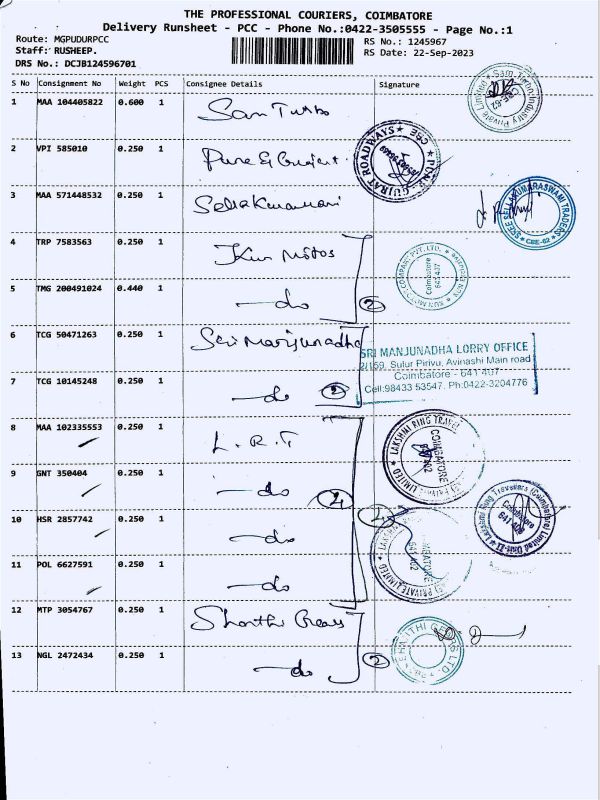 THE PROFESSIONAL COURIERS, COIMBATORE
Delivery Runsheet - PCC - Phone No.:0422-3505555 - Page No.:1
Route: MGPUDURPCC
RS No.: 1245967
Staff: RUSHEEP.
RS Date: 22-Sep-2023
DRS No.: DCJB124596701
S No Consignment No Weight PCS Consignee Details Signature
1 MAA 104405822 0.600 1 San Turbo
2 VPI 585010 0.250 1 Pure
ROADWAYS
CBE
3 MAA 571448532 0.250 1
SREE SELLAKUMARASWAMI TRADERS
CBE-62
4 TRP 7583563 0.250 1
COMPANY PVT. LTD.
Coimbatore
641 407
5 TMG 200491024 0.440 1 do 2
6 TCG 50471263 0.250 1 Sri Manjunadha
SRI MANJUNADHA LORRY OFFICE
2/159, Sulur Pirivu, Avinashi Main road
Coimbatore - 641 407
Cell:98433 53547. Ph:0422-3204776
7 TCG 10145248 0.250 1 do 2
8 MAA 102335553 0.250 1 L.R.T
LAKSHMI RING TRAVEL
COIMBATORE
9 GNT 350404 0.250 1 do 4
10 HSR 2857742 0.250 1 do
Lakshmi Ring Travellers (Coimbatore) Limited Unit-II
Coimbatore
641 402
11 POL 6627591 0.250 1 do
PRIVATE LIMITED
641 402
12 MTP 3054767 0.250 1 Shanthi Gears
13 NGL 2472434 0.250 1 do 2